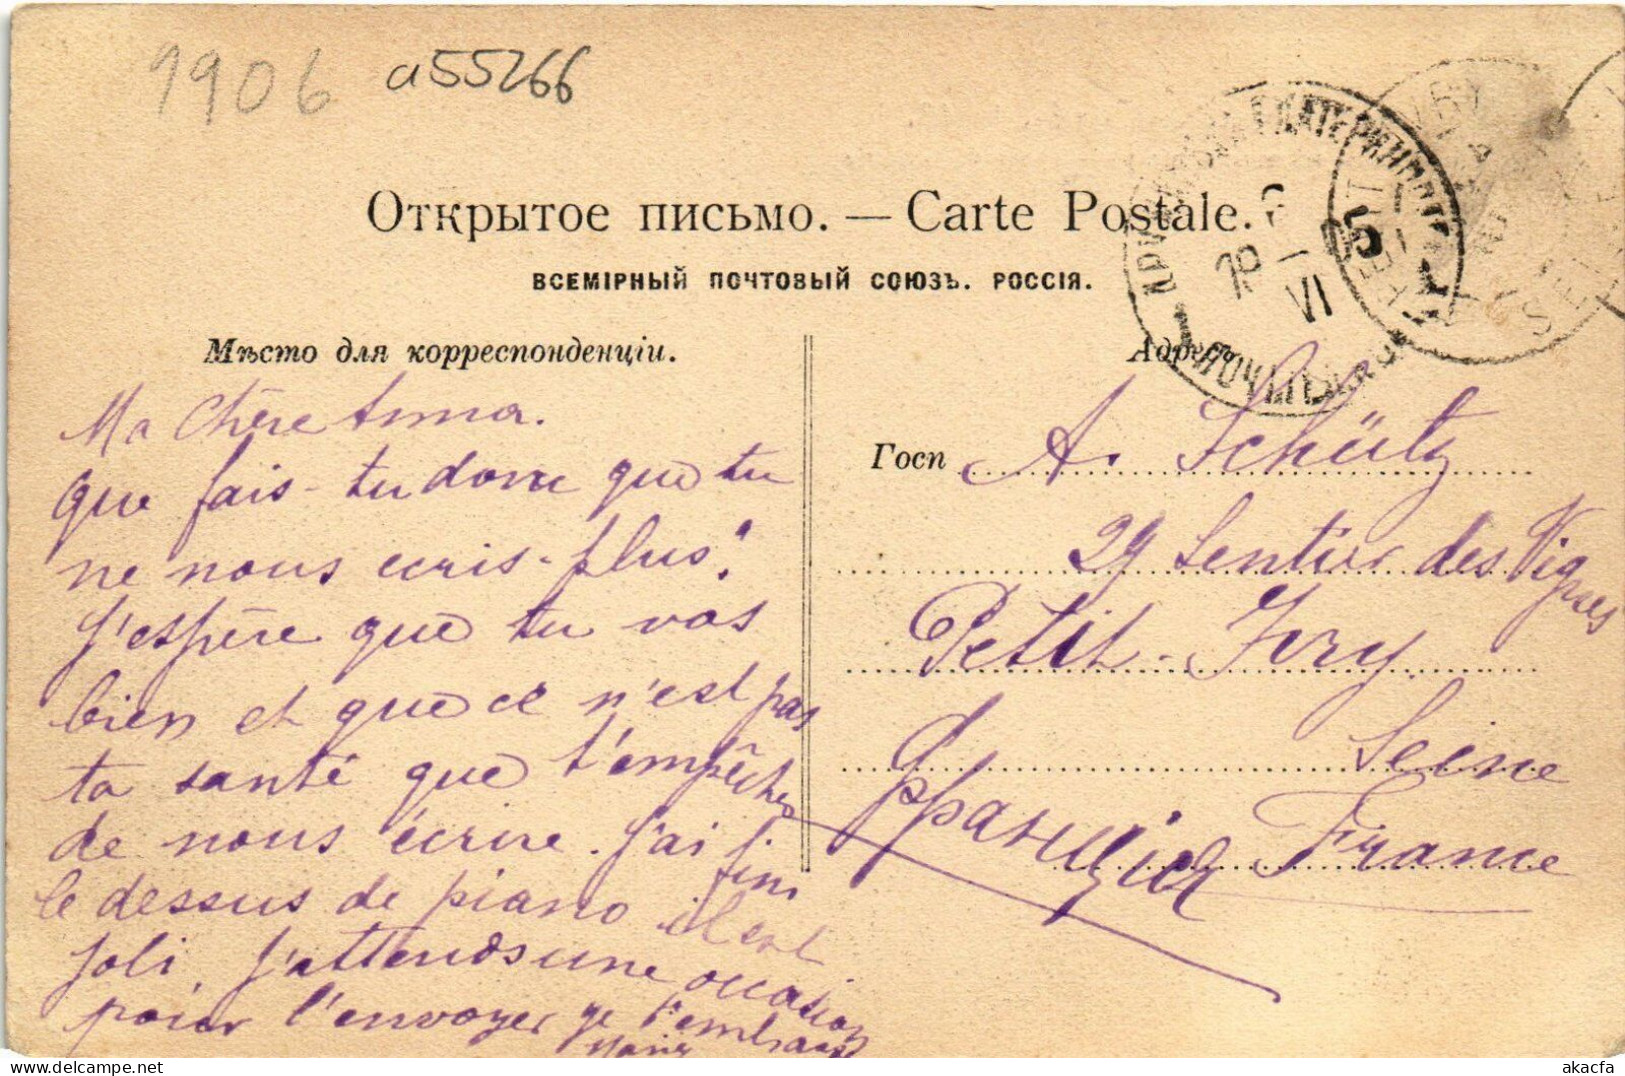 1906 a55266
Открытое письмо. — Carte Postale.
ВСЕМІРНЫЙ ПОЧТОВЫЙ СОЮЗЪ. РОССІЯ.
Мѣсто для корреспонденціи.
Адресъ
Ma Chère Anna.
que fais-tu donc que tu
ne nous ecris-plus?
J'espère que tu vas
bien et que ce n'est pas
ta santé que t'empêche
de nous écrire. J'ai fini
le dessus de piano il est
joli, j'attends une occasion
pour l'envoyer je t'embrasse
Госп A. Schütz
29 Sentier des Vignes
Petit-Ivry
Seine
Франція France
5
VI
ПОЧТ
akacfa